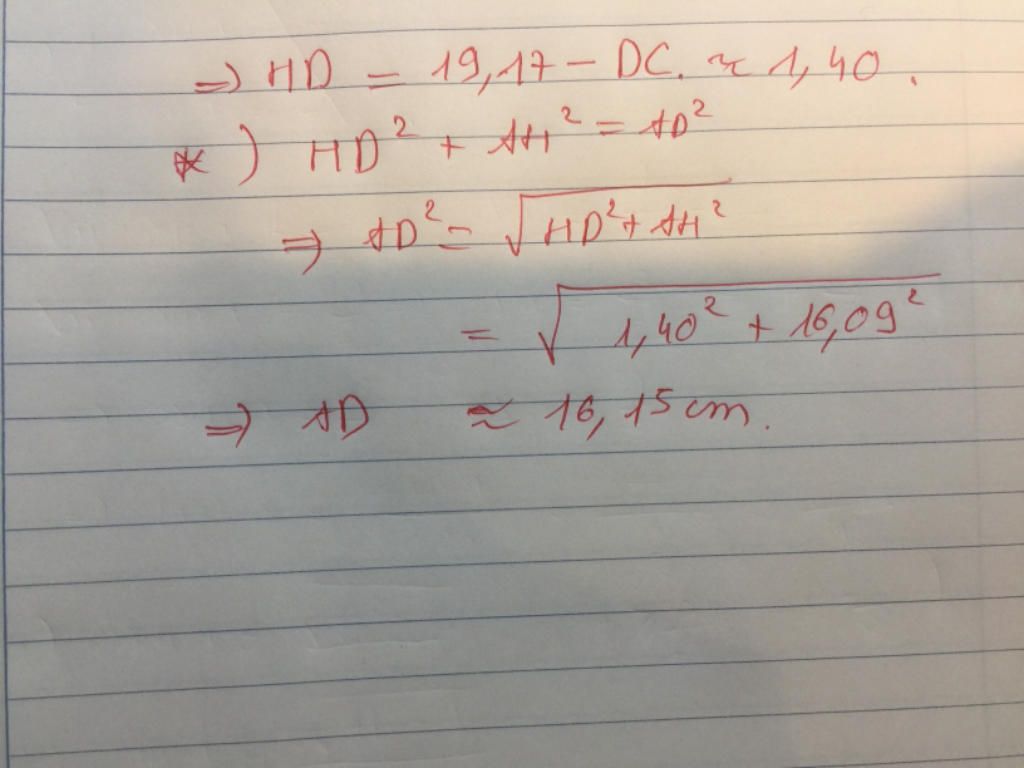 => HD = 19,17 - DC. ≈ 1,40.
*) HD² + AH² = AD²
=> AD² = √HD² + AH²
= √1,40² + 16,09²
=> AD ≈ 16,15 cm.